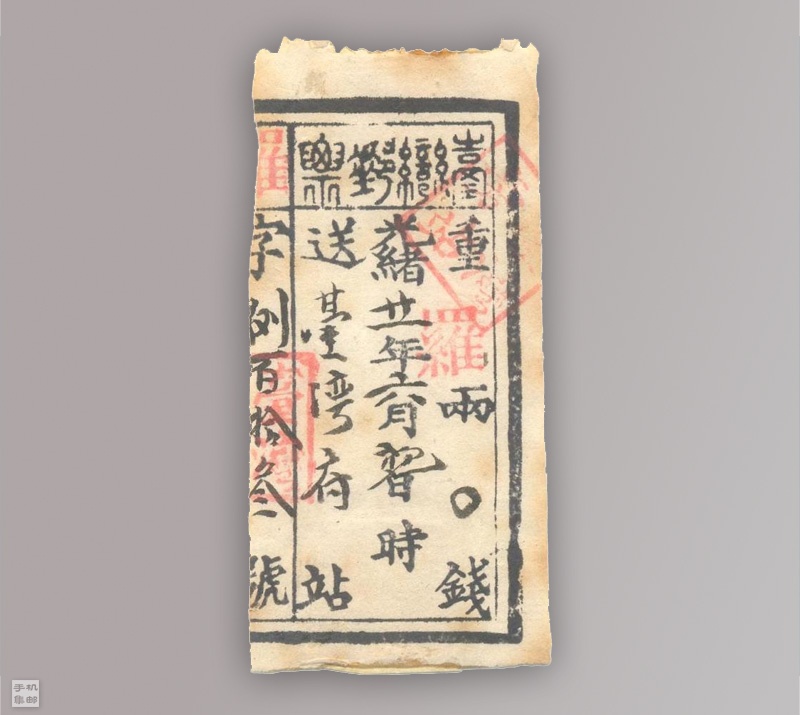 臺灣郵票
重 兩 〇 錢
羅
光緒廿一年六月 時
送 灣府 站
羅字 捌百拾叁 號
手机
集邮